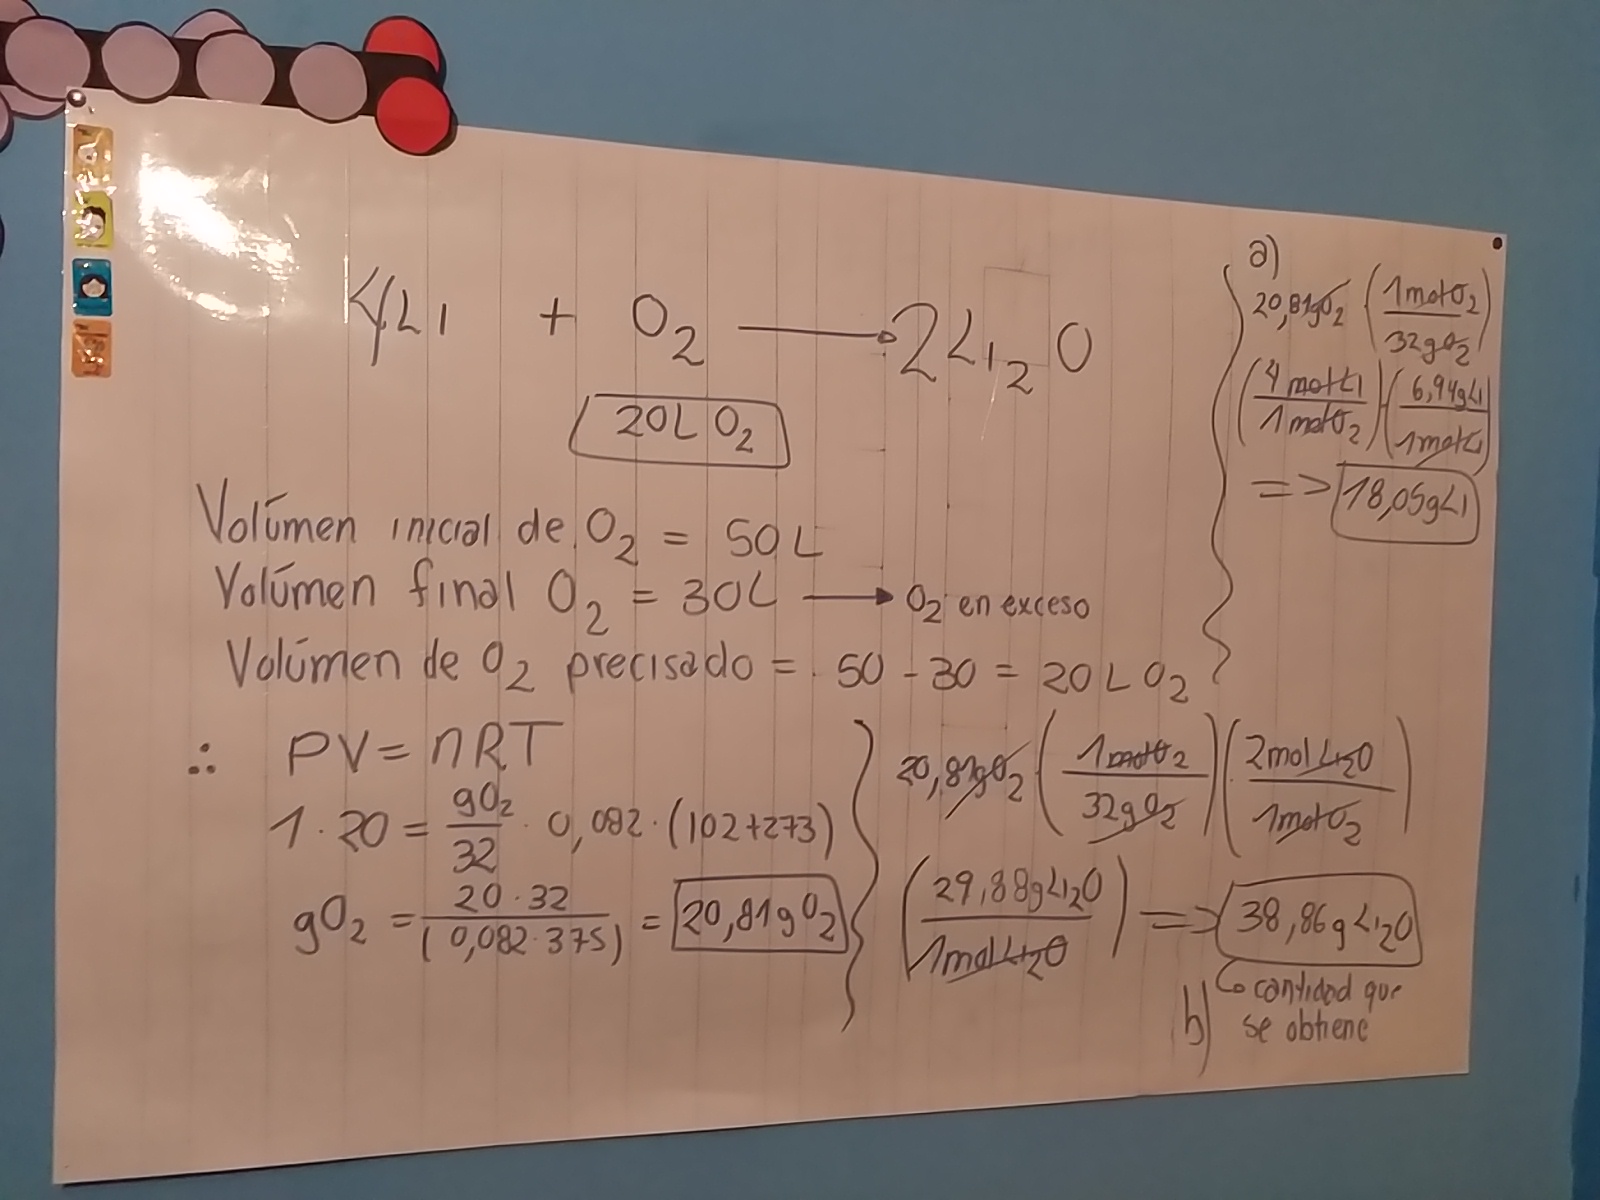 4Li + O₂ → 2Li₂O
20L O₂
Volúmen inicial de O₂ = 50L
Volúmen final O₂ = 30L → O₂ en exceso
Volúmen de O₂ precisado = 50 - 30 = 20L O₂
∴ PV = nRT
1 · 20 = gO₂/32 · 0,082 · (102+273)
gO₂ = 20 · 32/(0,082 · 375) = 20,81gO₂
a)
20,81gO₂ · (1molO₂/32gO₂)
(4molLi/1molO₂) · (6,94gLi/1molLi)
=> 18,05gLi
20,81gO₂ · (1molO₂/32gO₂) (2molLi₂O/1molO₂)
(29,88gLi₂O/1molLi₂O) => 38,86gLi₂O
b) ↳ cantidad que
se obtiene